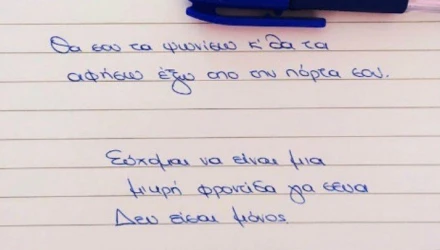 Θα σου τα ψωνίσω κ' θα τα
αφήσω έξω απο την πόρτα σου.
Εύχομαι να είναι μια
μικρή φροντίδα για σενα
Δεν είσαι μόνος.